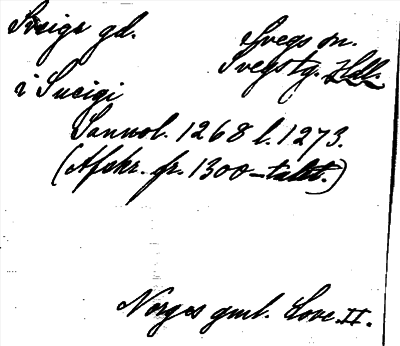 Sveigr gd.
Svegs sn.
Svegs tg. Hdl.
i Sueigi
Sannol. 1268 l. 1273.
(Afskr. fr. 1300-talet.)
Norges gml. Love. II.